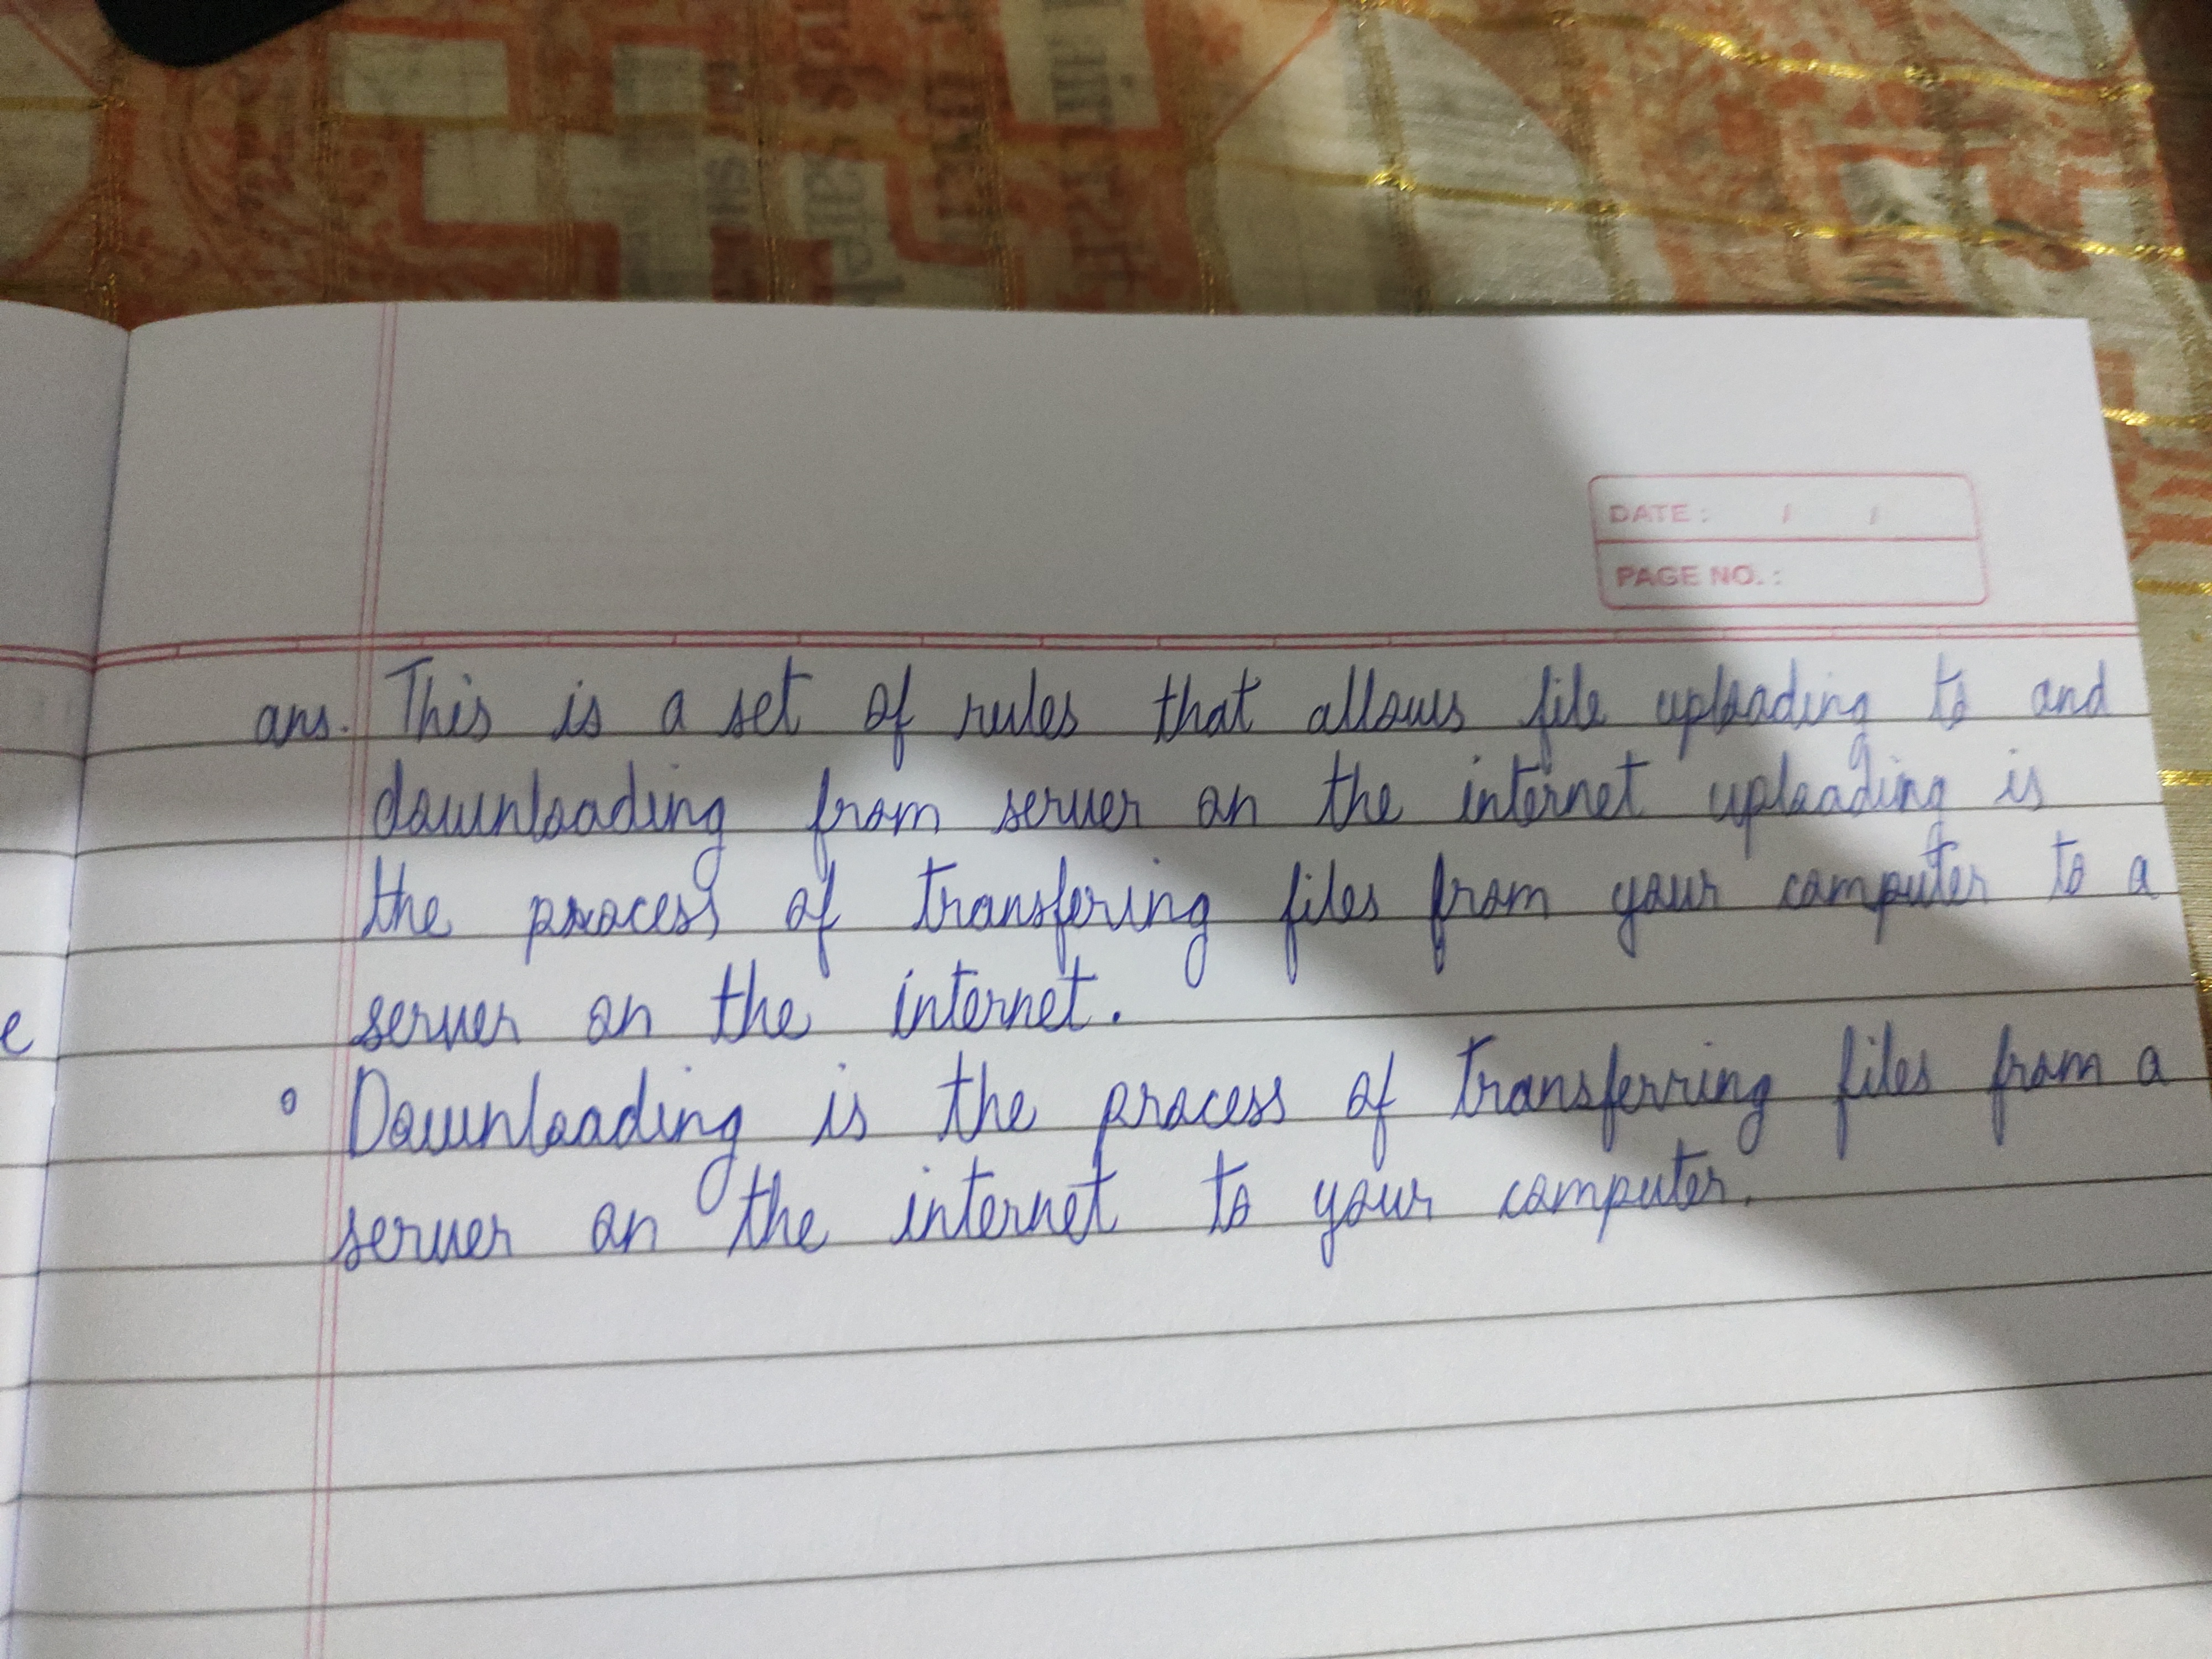 DATE : / /
PAGE NO. :
ans. This is a set of rules that allows file uploading to and
downloading from server on the internet uploading is
the process of transfering files from your computer to a
server on the internet.
e
° Downloading is the process of transferring files from a
server on the internet to your computer.